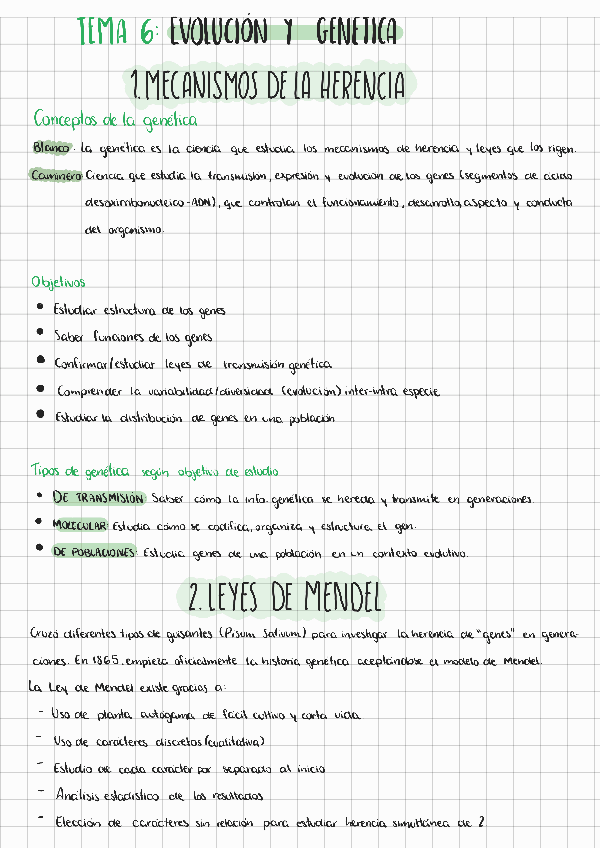 TEMA 6: EVOLUCIÓN Y GENETICA
1. MECANISMOS DE LA HERENCIA
Conceptos de la genética
Blanco: La genética es la ciencia que estudia los mecanismos de herencia y leyes que los rigen.
Caminero Ciencia que estudia la transmisión, expresión y evolución de los genes (segmentos de acido
desoxirribonucleico-ADN), que controlan el funcionamiento, desarrollo, aspecto y conducta
del organismo.
Objetivos
• Estudiar estructura de los genes
• Saber funciones de los genes
• Confirmar/estudiar leyes de transmisión genética
• Comprender la variabilidad/diversidad (evolución) inter-intra especie
• Estudiar la distribución de genes en una población
Tipos de genética según objetivo de estudio
• DE TRANSMISIÓN: Saber cómo la info. genética se hereda y transmite en generaciones.
• MOLECULAR: Estudia cómo se codifica, organiza y estructura el gen.
• DE POBLACIONES: Estudia genes de una población en un contexto evolutivo.
2. LEYES DE MENDEL
Cruzó diferentes tipos de guisantes (Pisum Sativum) para investigar la herencia de "genes" en genera-
ciones. En 1865, empieza oficialmente la historia genética aceptándose el modelo de Mendel.
La Ley de Mendel existe gracias a:
- Uso de planta autógama de fácil cultivo y corta vida
- Uso de caracteres discretos (cualitativa)
- Estudio de cada carácter por separado al inicio
- Análisis estadístico de los resultados
- Elección de carácteres sin relación para estudiar herencia simultánea de 2